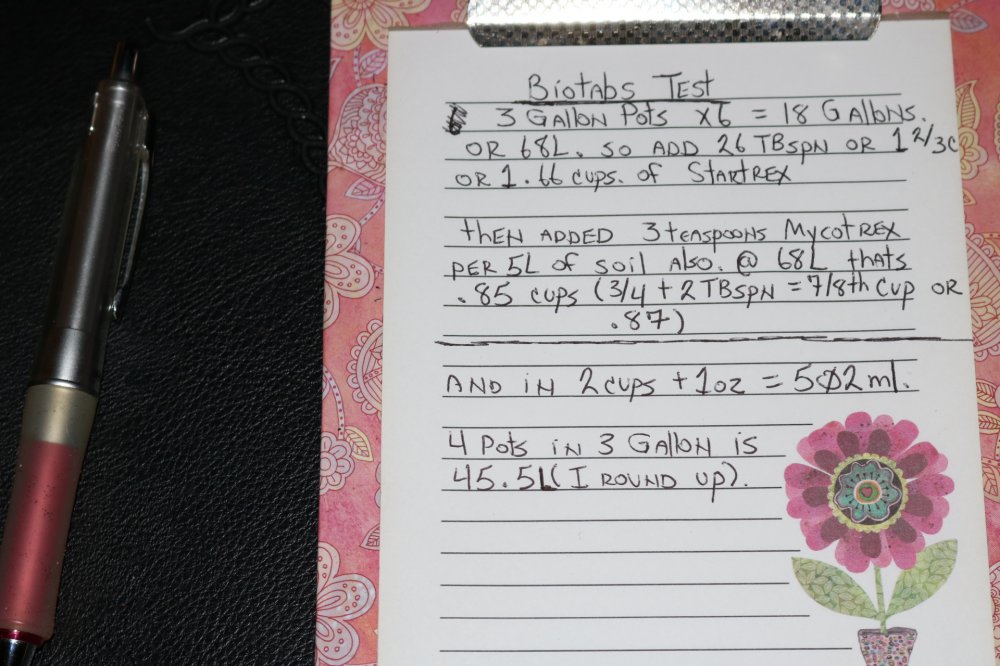 Biotabs Test
3 Gallon Pots x6 = 18 Gallons.
OR 68L. SO ADD 26 TBSPN OR 1 2/3C
OR 1.66 cups. of StartREX
then ADDED 3 teaspoons MycotREX
PER 5L of soil Also. @ 68L thats
.85 cups (3/4 + 2 TBSPN = 7/8th Cup OR
.87)
AND iN 2 cups + 1oz = 502ml.
4 Pots iN 3 Gallon is
45.5L (I ROUND up).